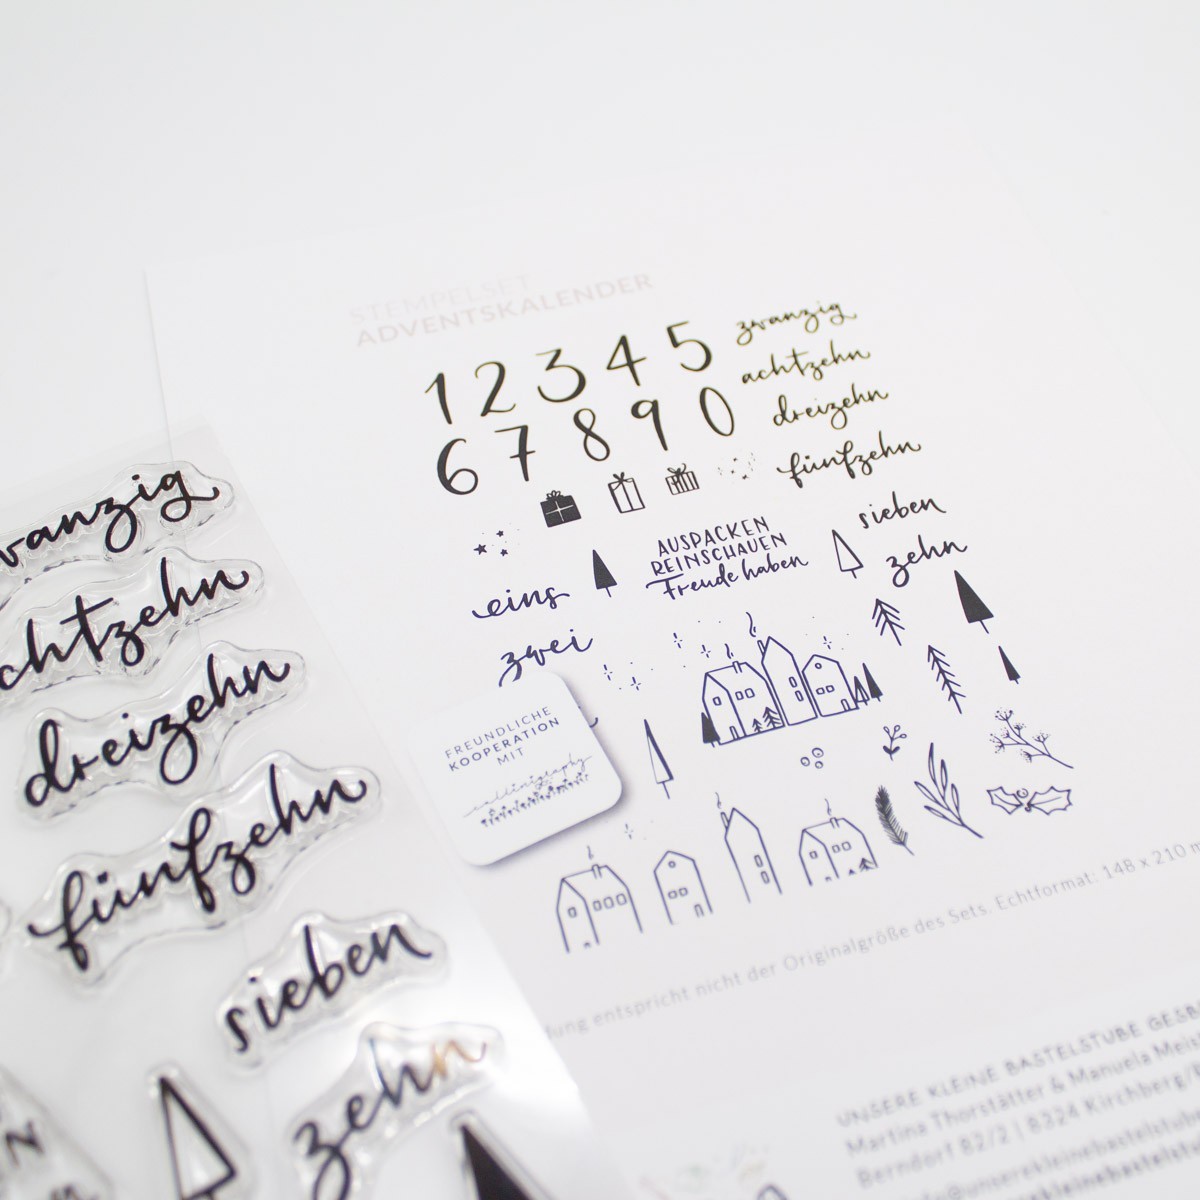 STEMPELSET
ADVENTSKALENDER
1 2 3 4 5
6 7 8 9 0
zwanzig
achtzehn
dreizehn
fünfzehn
sieben
zehn
AUSPACKEN
REINSCHAUEN
Freude haben
eins
zwei
FREUNDLICHE
KOOPERATION
MIT
entspricht nicht der Originalgröße des Sets. Echtformat: 148 x 210 m
UNSERE KLEINE BASTELSTUBE GESB
Martina Thorstätter & Manuela Meis
Berndorf 82/2 | 8324 Kirchberg/
unserekleinebastelstub
kleinebastelst
wanzig
chtzehn
dreizehn
fünfzehn
sieben
zehn
N